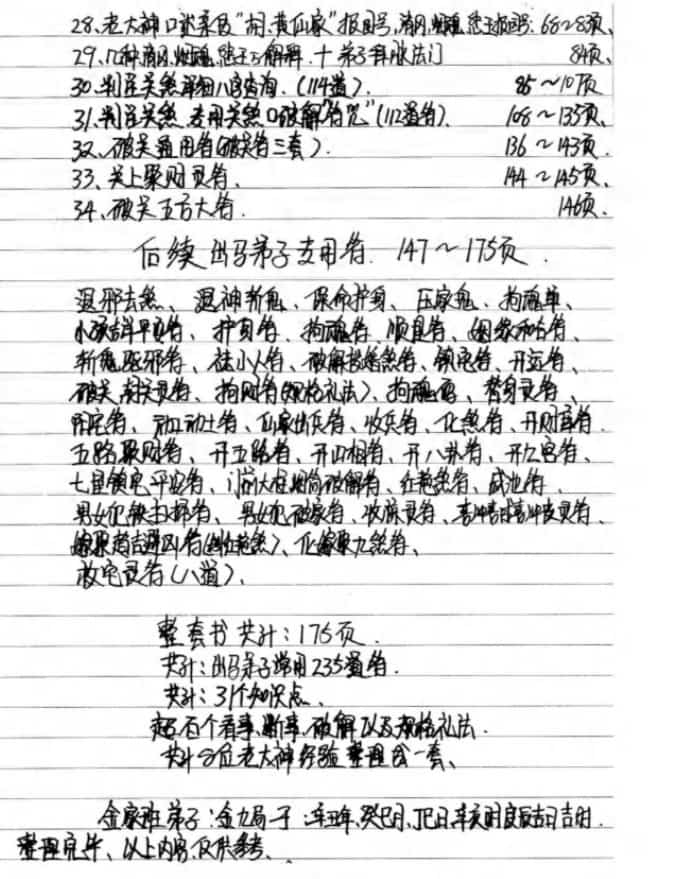 28、老大神口述柔良"胡、黄仙家"报国号、清风、烟魂、悲王报号: 68~83页、
29、几种清风、烟魂、悲王之解释、十弟子科脉法门 84页、
30、判断关煞详细八字查询、(114道)、 85~107页
31、判断关煞 专用关煞口破解"符咒"(112道符)、 108~135页、
32、破关通用符(破关符三套)、 136~143页、
33、关上聚财灵符、 144~145页、
34、破关五方大符、 146页、
后续出马弟子专用符、147~175页、
退邪去煞、退神斩鬼、保命护身、压家鬼、拘魂单、
小孩吉祥平安符、护身符、拘魂符、顺星符、姻缘和合符、
斩鬼驱邪符、祛小人符、破解婚煞符、镇宅符、开运符、
破关关灵符、拘财符(规格礼法)、拘魂符、替身灵符、
阴宅符、动工动土符、仙家出兵符、收兵符、化煞符、开财库符、
五路聚财符、开五路符、开山相符、开八卦符、开九宫符、
七星镇宅平安符、门前大柱烟筒破解符、红艳煞符、咸池符、
男女犯 符、男女犯破家符、收 灵符、 灵符、
嫁娶趋吉避凶符( 煞)、化嫁娶九煞符、
收宅灵符(八道)、
整套书共计:175页、
共计:出马弟子常用235道符、
共计:31个知识点、
超百个看事、断事、破解以及规格礼法、
共计8位老大神经验整理成一套、
金家班弟子:金九局一于:辛丑年、癸巳月、丁巳日、辛亥时良辰吉日吉时、
整理完毕、以上内容仅供参考、